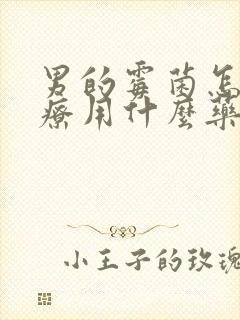 男的霉菌怎
療用什麼藥
小王子的玫瑰